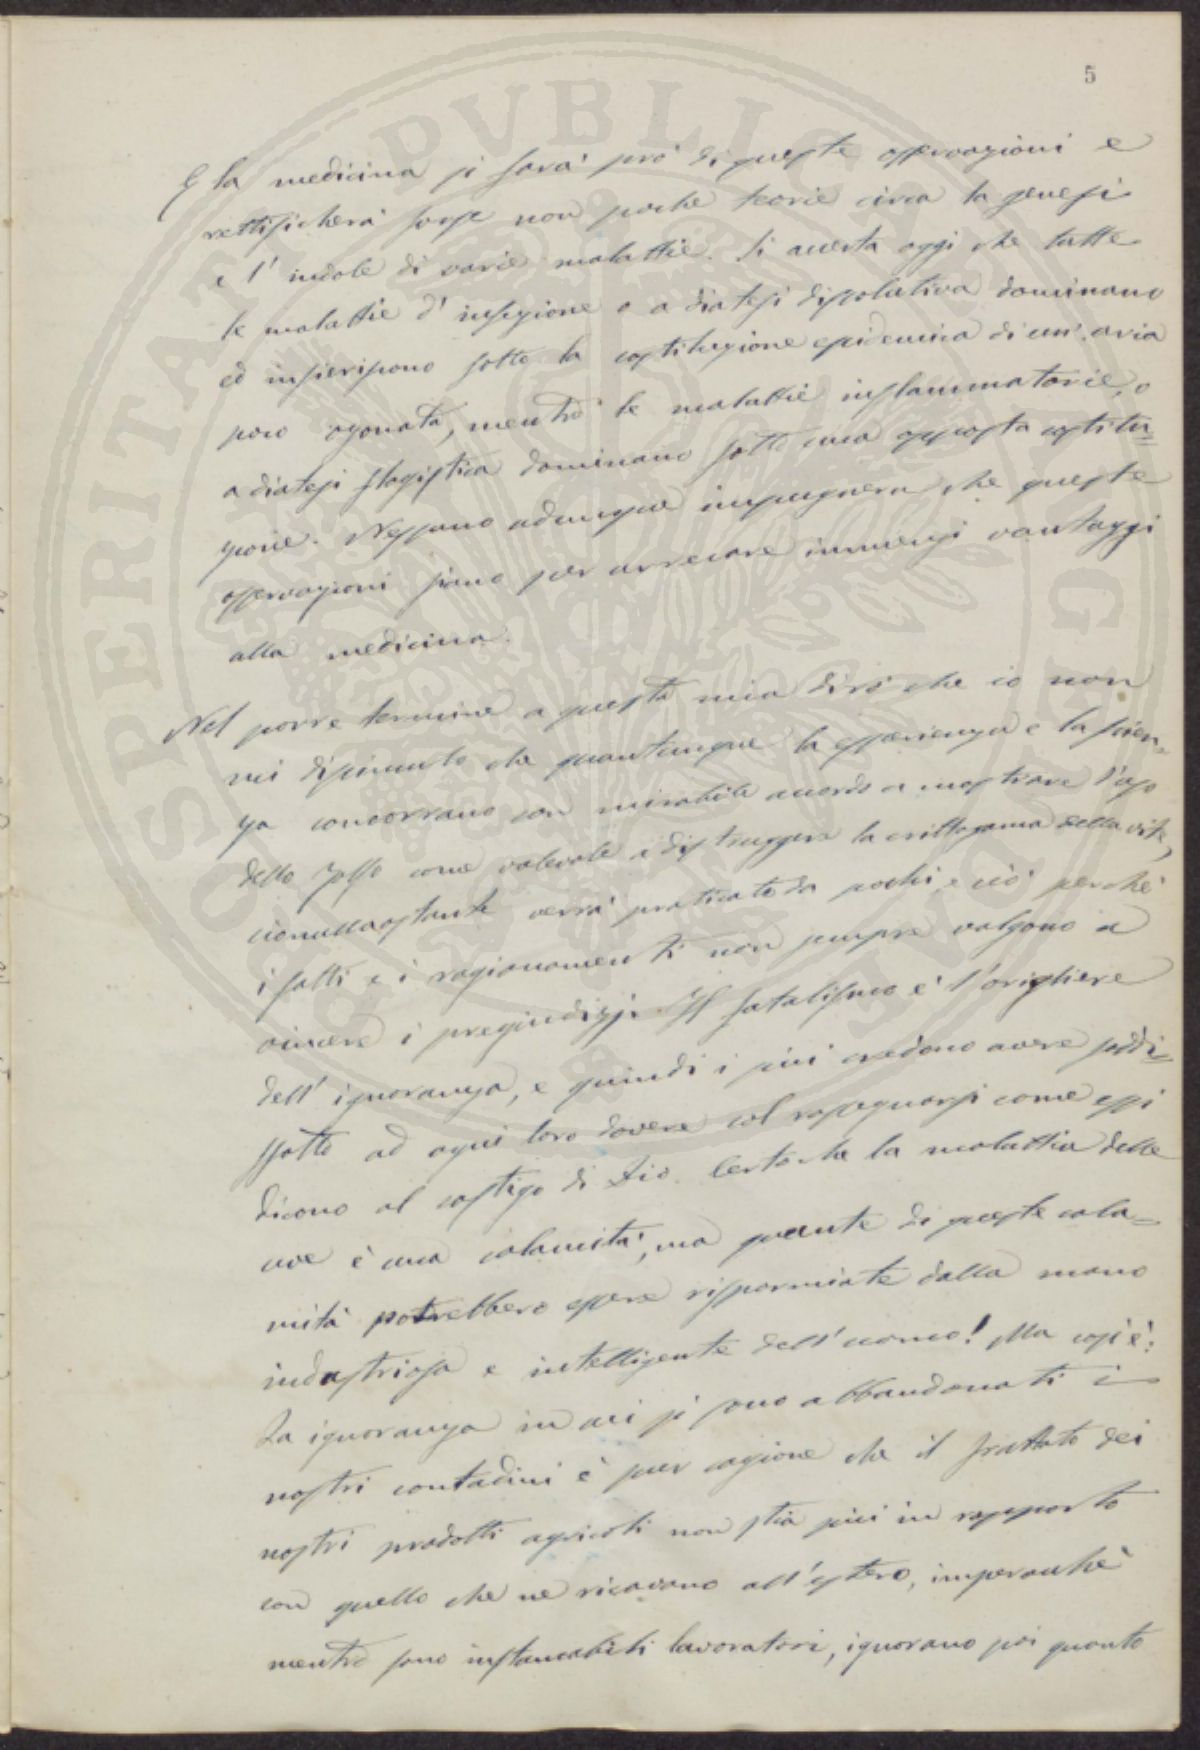 5
E la medicina si farà prò di queste osservazioni e
rettificherà forse non poche teorie circa la genesi
e l'indole di varie malattie. Si accerta oggi che tutte
le malattie d'infezione o a diatesi dissolutiva dominano
ed infieriscono sotto la costituzione epidemica di un'aria
poco ozonata, mentre le malattie inflammatorie, o
a diatesi flogistica dominano sotto una opposta costitu=
zione. Nessuno adunque impugnerà che queste
osservazioni siano per arrecare immensi vantaggi
alla medicina.
Nel porre termine a questa mia dirò che io non
mi dissimulo che quantunque la esperienza e la scien=
za concorrano con mirabile accordo a mostrare l'uso
dello zolfo come valevole a distruggere la crittogama della vite,
ciònullaostante verrà praticato da pochi e ciò perchè
i fatti e i ragionamenti non sempre valgono a
vincere i pregiudizj. Il fatalismo è l'origliere
dell'ignoranza, e quindi i più credono avere soddi=
sfatto ad ogni loro dovere col rassegnarsi come essi
dicono al castigo di Dio. Certo che la malattia delle
uve è una calamità, ma quante di queste cala=
mità potrebbero essere risparmiate dalla mano
industriosa e intelligente dell'uomo! Ma così è:
La ignoranza in cui si sono abbandonati i
nostri contadini è per cagione che il fruttato dei
nostri prodotti agricoli non stia più in rapporto
con quello che ne ricavano all'estero, imperocchè
mentre sono instancabili lavoratori, ignorano poi quanto
PROSPERITATI PVBLICAE AVGENDAE